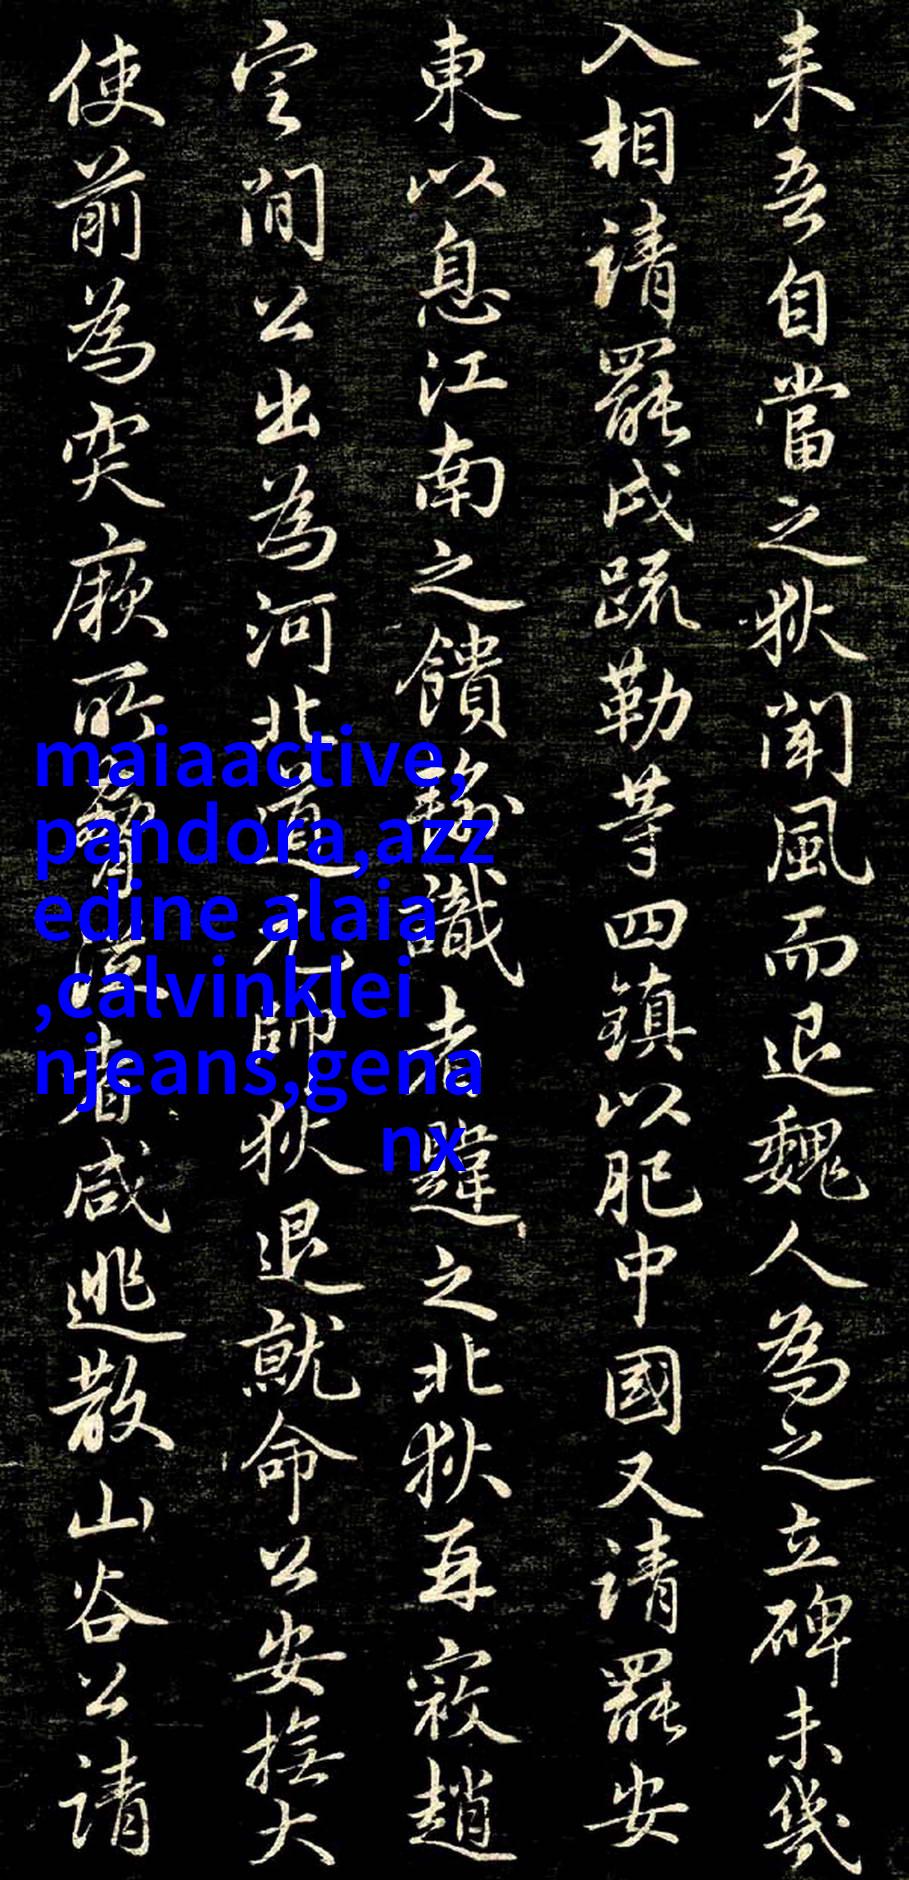 来吾自當之狄聞風而退魏人為之立碑未幾
入相請罷戍疏勒等四鎮以肥中國又請罷安
東以息江南之饋輸識者韙之北狄再寇趙
定間公出為河北道元帥狄退就命公安撫大
使前為突厥所脅從者咸逃散山谷公請
maiaactive,
pandora,azz
edine alaia
,calvinklei
njeans,gena
nx